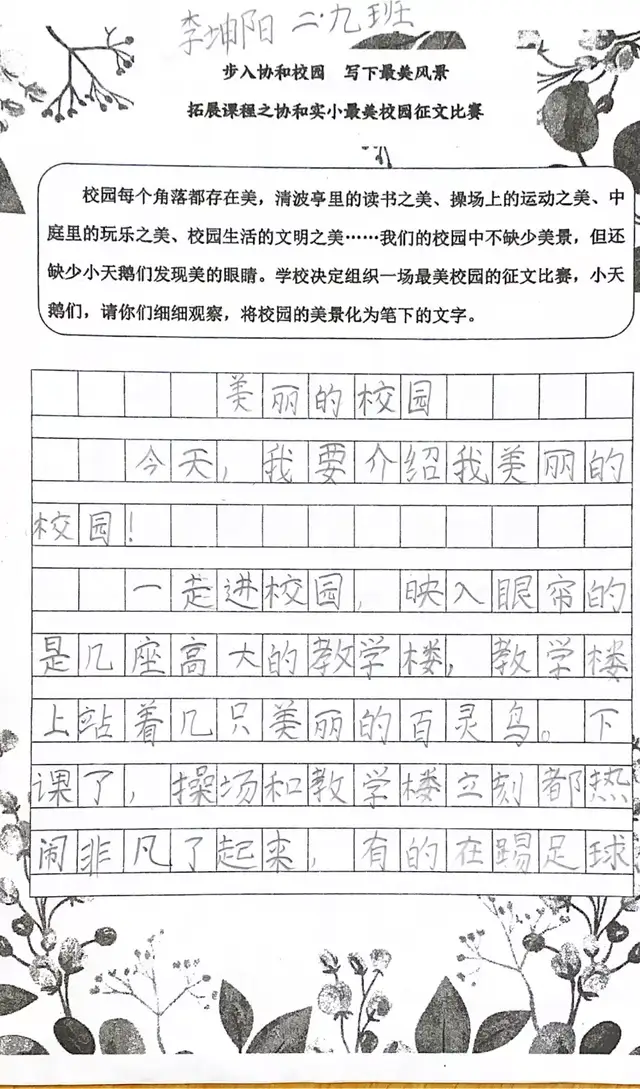 李坤阳 二.九班
步入协和校园 写下最美风景
拓展课程之协和实小最美校园征文比赛
校园每个角落都存在美，清波亭里的读书之美、操场上的运动之美、中
庭里的玩乐之美、校园生活的文明之美……我们的校园中不缺少美景，但还
缺少小天鹅们发现美的眼睛。学校决定组织一场最美校园的征文比赛，小天
鹅们，请你们细细观察，将校园的美景化为笔下的文字。
美丽的校园
今天，我要介绍我美丽的
校园！
一走进校园，映入眼帘的
是几座高大的教学楼，教学楼
上站着几只美丽的百灵鸟。下
课了，操场和教学楼立刻都热
闹非凡了起来，有的在踢足球